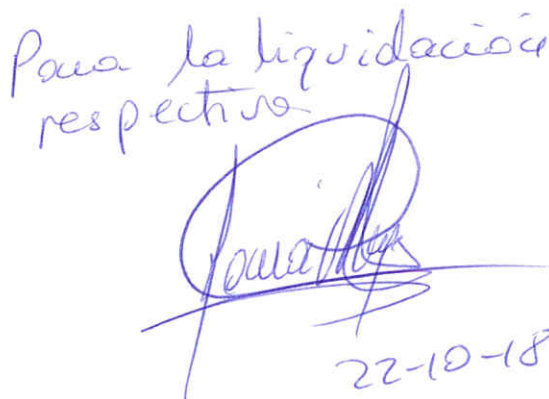 Para la liquidación
respectiva
22-10-18